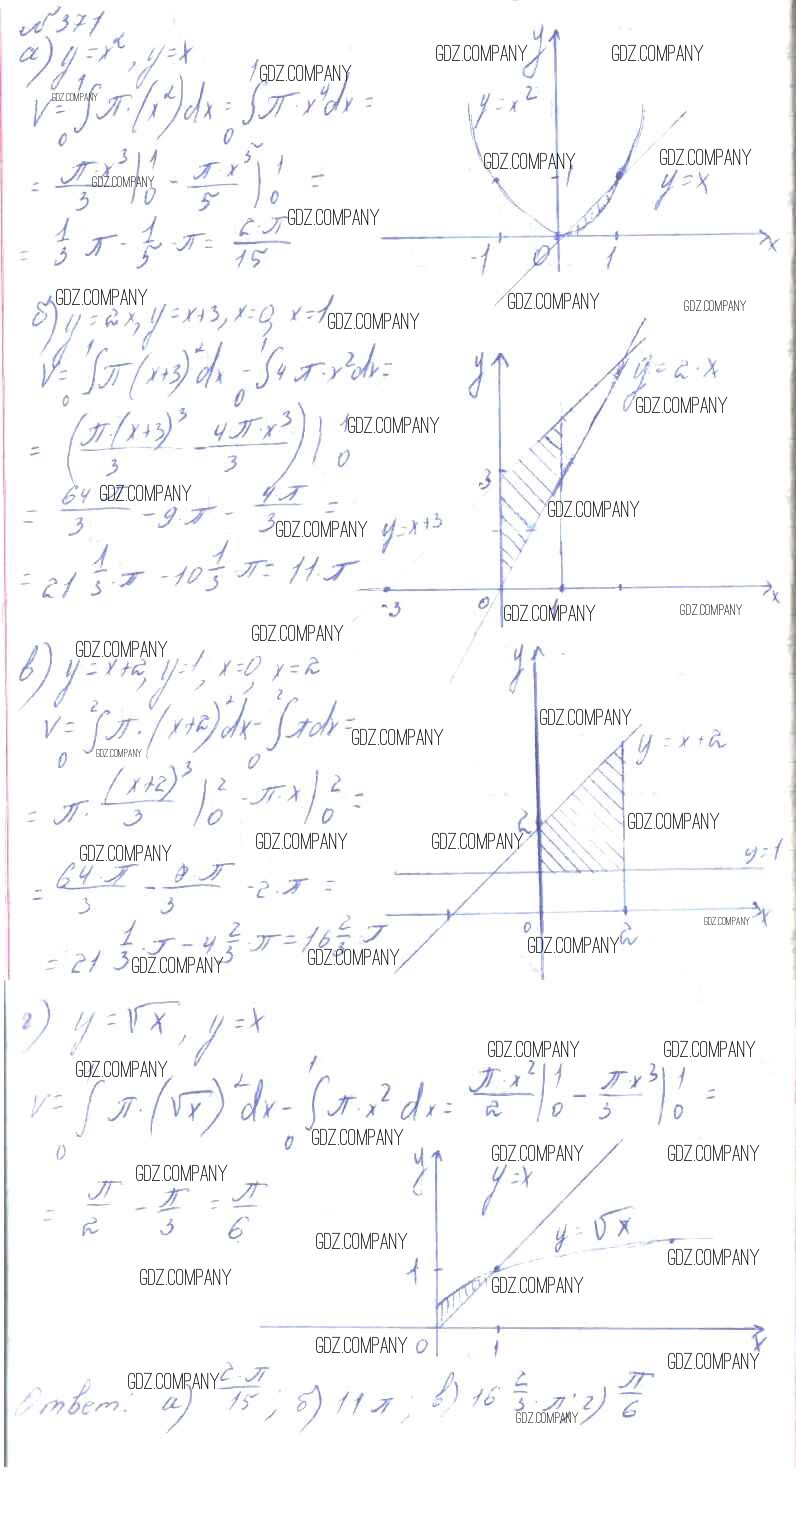 №371
а) y=x², y=x
V= ₀∫¹ π·(x²)dx - ₀∫¹ π·x⁴dx =
= π·x³/3 |₀¹ - π·x⁵/5 |₀¹ =
= 1/3 π - 1/5·π = 2·π/15
y
y=x²
1
y=x
-1
0
1
x
б) y=2x, y=x+3, x=0, x=1
V= ₀∫¹ π(x+3)²dx - ₀∫¹ 4π·x²dx=
= (π·(x+3)³/3 - 4π·x³/3) |₀¹
= 64/3 - 9·π - 4π/3 =
= 21 1/3·π - 10 1/3·π = 11·π
y
y=2·x
3
y=x+3
-3
0
1
x
в) y=x+2, y=1, x=0, x=2
V= ₀∫² π·(x+2)²dx - ₀∫² πdx=
= π·(x+2)³/3 |₀² - π·x |₀² =
= 64·π/3 - 8π/3 - 2·π =
= 21 1/3·π - 4 2/3·π = 16 2/3·π
y
y=x+2
2
y=1
0
2
x
г) y=√x, y=x
V= ₀∫ π·(√x)²dx - ₀∫¹ π·x² dx = π·x²/2 |₀¹ - π·x³/3 |₀¹ =
= π/2 - π/3 = π/6
y
y=x
y=√x
1
0
1
x
Ответ: а) 2·π/15; б) 11π; в) 16 2/3·π; г) π/6
GDZ.COMPANY